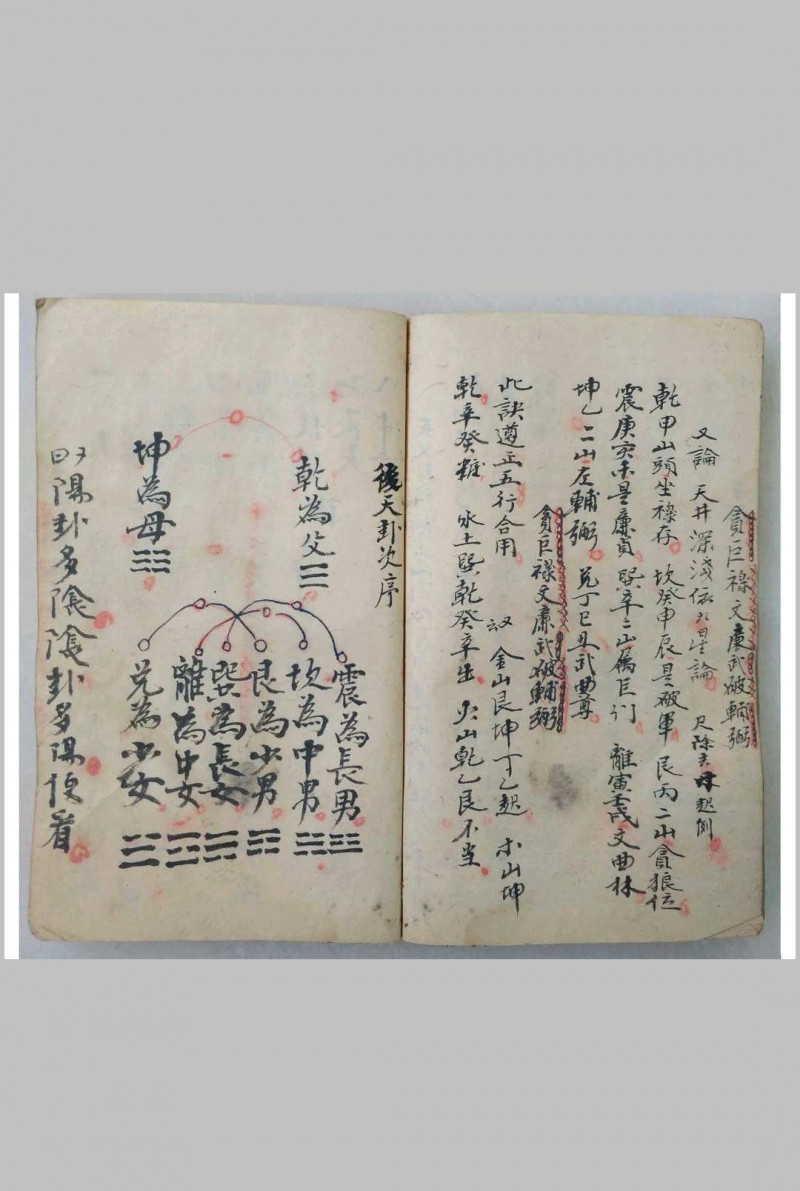 貪巨祿文廉武破輔弼
又論天井深淺依九星論 尺除去 起例
乾甲山頭坐祿存 坎癸申辰是破軍 艮丙二山貪狼位
震庚亥未是廉貞 巽辛二山為巨门 離寅壬戌文曲林
坤乙二山左輔弼 兌丁巳丑武曲尊
貪巨祿文廉武破輔弼
此訣遵正五行合用 金山艮坤丁乙起 木山坤
乾辛癸 水土巽乾癸辛 火山乾乙艮不当
後天卦次序
乾為父☰
坤為母☷
震為長男
坎為中男
艮為少男
巽為長女
離為中女
兌為少女
陽卦多陰陰卦多陽便看